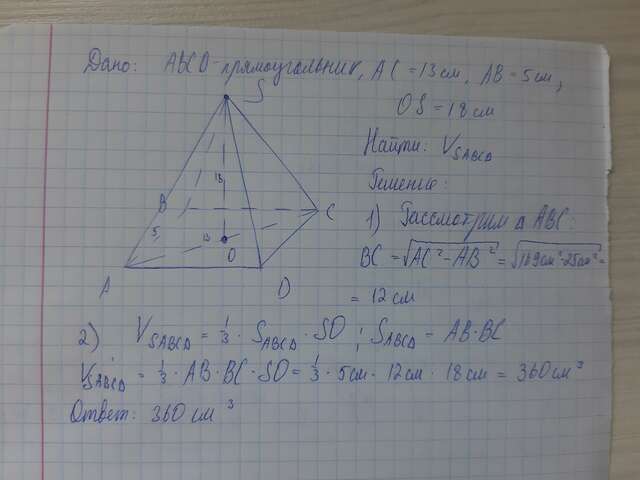 Дано: ABCD-прямоугольник, AC = 13 см, AB = 5 см,
OS = 18 см
Найти: V_SABCD
Решение:
1) Рассмотрим Δ ABC:
BC = √(AC² - AB²) = √(169 см² - 25 см²) =
= 12 см
S
18
B
C
5
13
O
A
D
2) V_SABCD = 1/3 · S_ABCD · SO ; S_ABCD = AB · BC
V_SABCD = 1/3 · AB · BC · SO = 1/3 · 5 см · 12 см · 18 см = 360 см³
Ответ: 360 см³